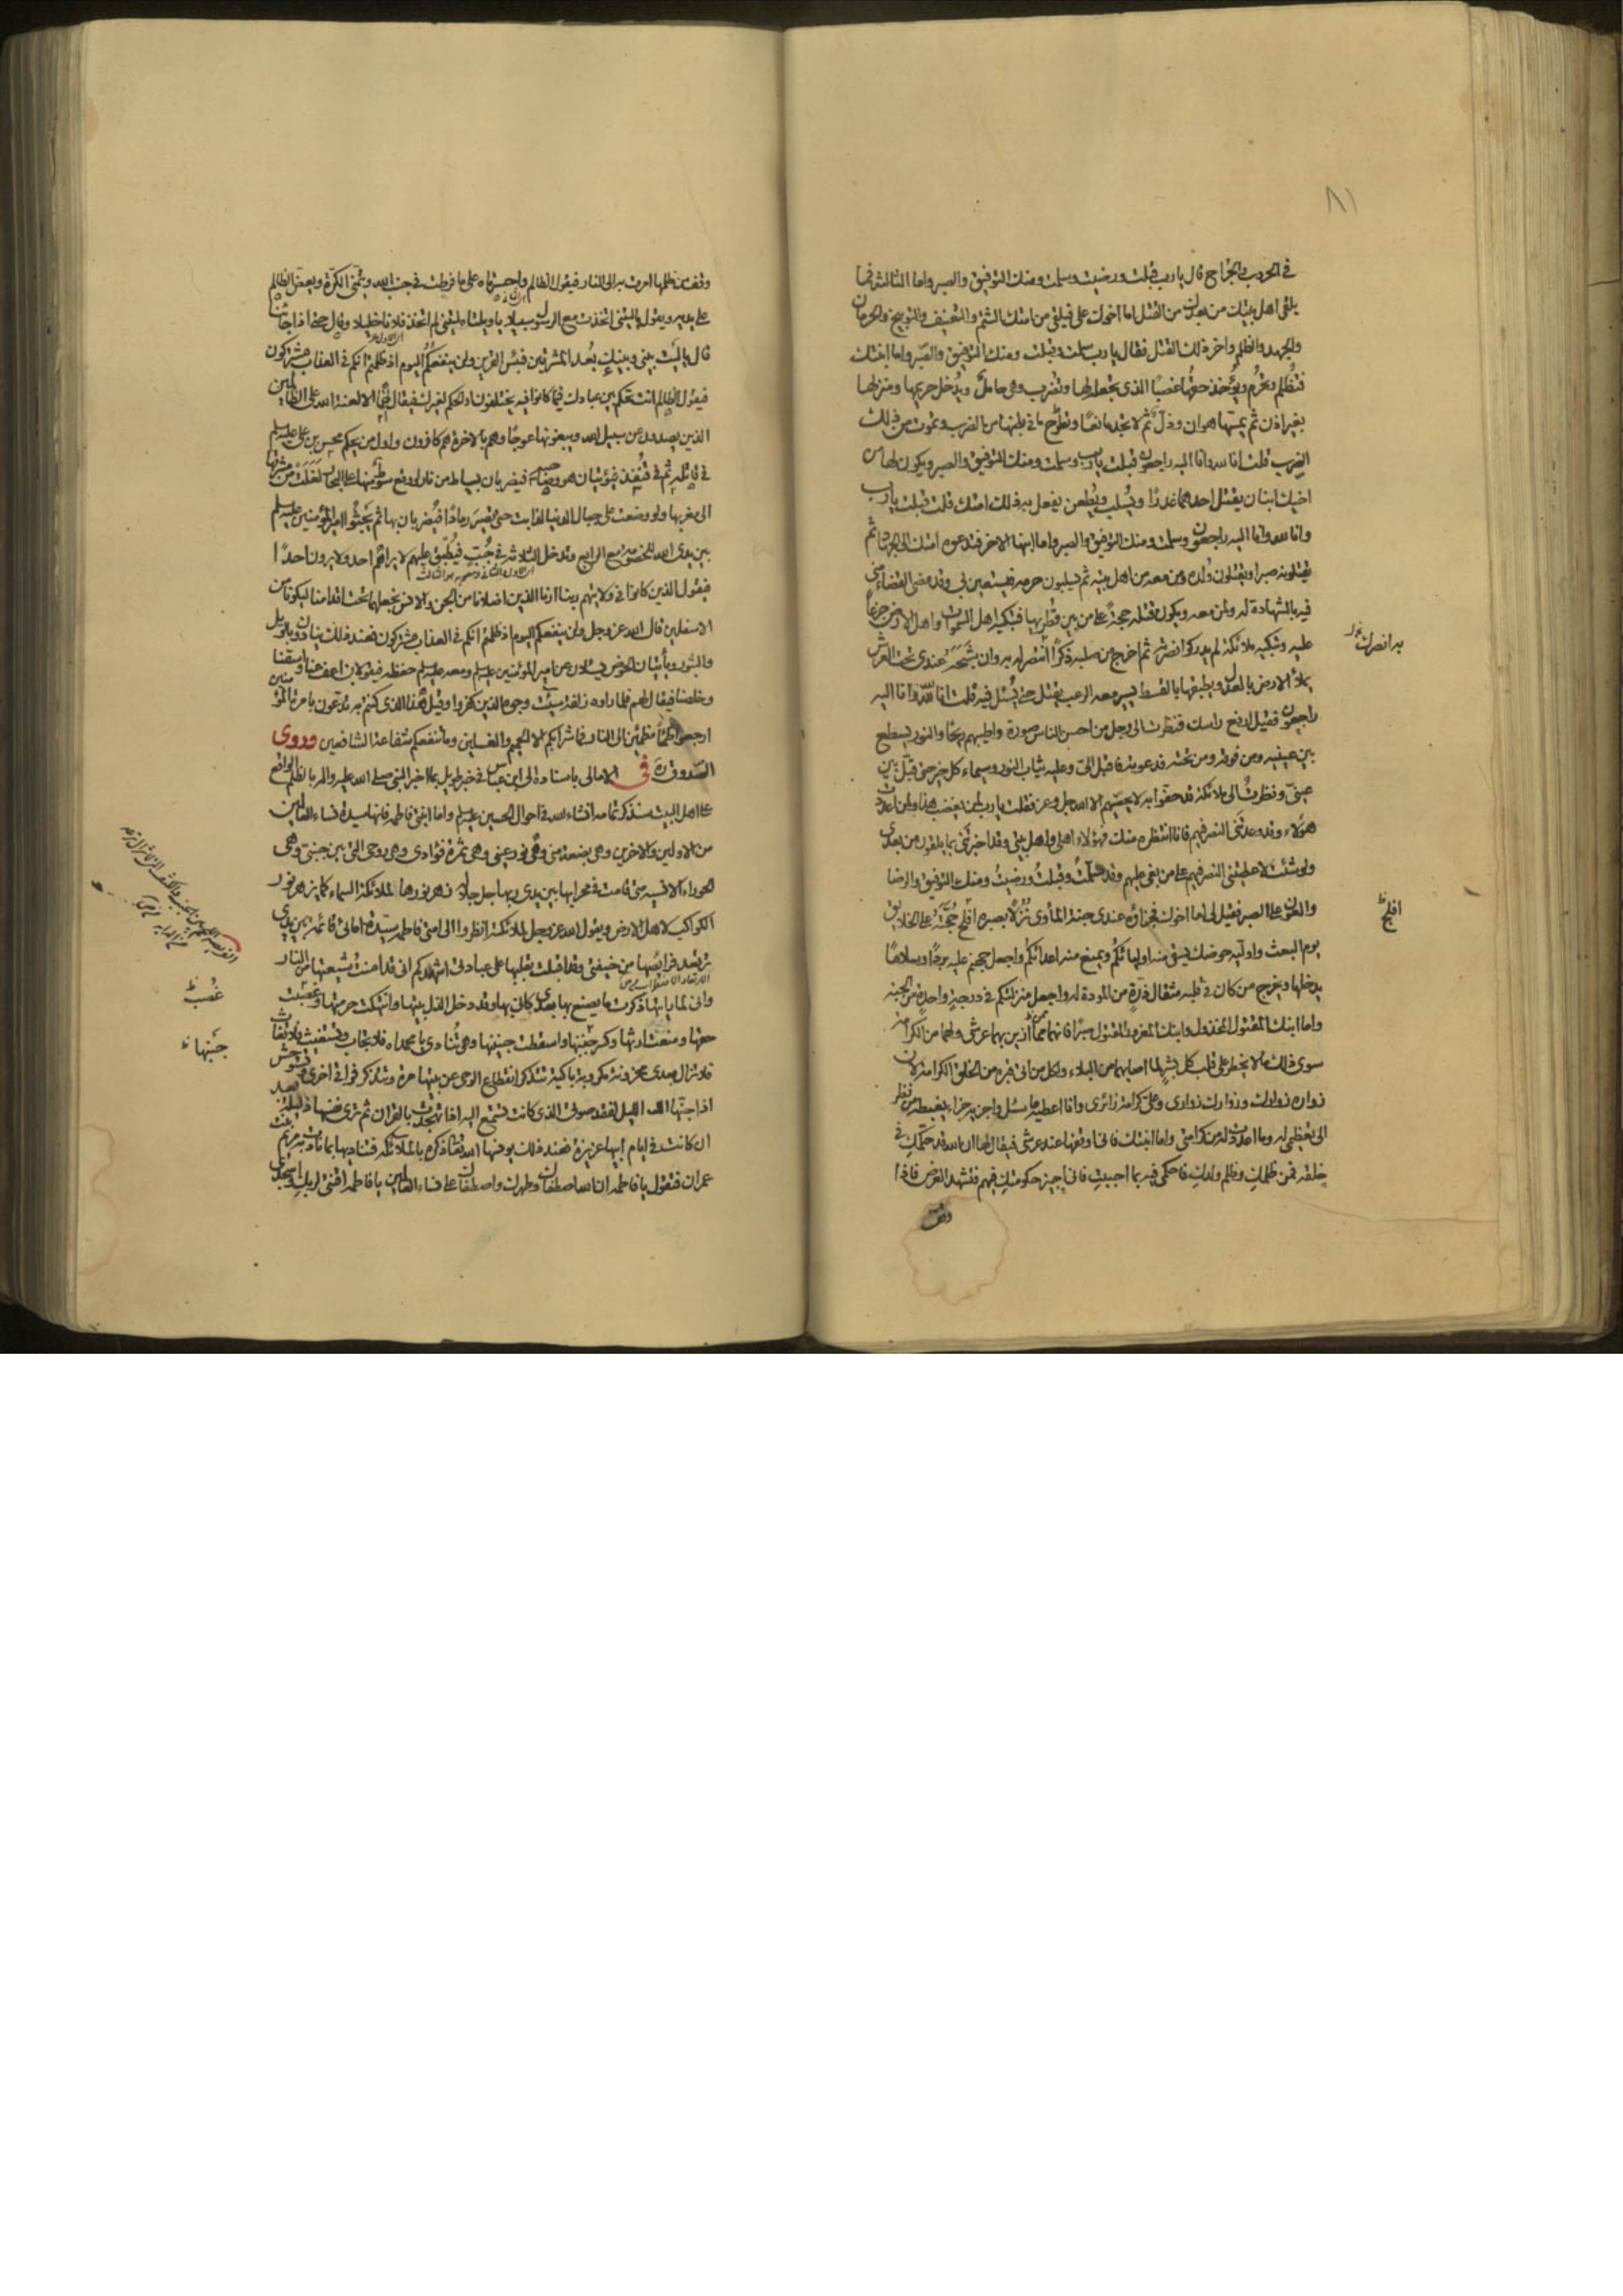 ٨١
في الحروب والجراح قال يا رب قبلت ورضيت وسلمت ومنك التوفيق والصبر واما الثالثة فما
يلقى اهل بيتك من بعدك من القتل اما اخوك علي فيلقى من امتك الشتم والتعنيف والتوبيخ والحرمان
والجهد والظلم واخر ذلك القتل فقال يا رب سلمت وقبلت ومنك التوفيق والصبر واما ابنتك
فتُظلم وتحرم ويؤخذ حقها غصبًا الذي يجعله لها وتضرب وهي حاملٌ ويدخل حريمها ومنزلها
بغير اذن ثم يمسها هوان وذلّ ثم لا تجد مانعًا وتطرح ما في بطنها من الضرب وتموت من ذلك
الضرب قلت انا لله وانا اليه راجعون قبلت يا رب وسلمت ومنك التوفيق والصبر ويكون لها من
اخيك ابنان يقتل احدهما غدرًا ويُسلب ويُطعن يفعل به ذلك امتك قلت قبلت يا رب
وانا لله وانا اليه راجعون وسلمت ومنك التوفيق والصبر واما ابنها الاخر فتدعوه امتك الى الجهاد ثم
يقتلونه صبرا ويقتلون وُلده ومن معه من اهل بيته ثم يسلبون حرمه فيستعين بي وقد مضى القضاء مني
فيه بالشهادة له ولمن معه ويكون قتله حجةً على من بين قطريها فتبكيه اهل السموات واهل الارض جزعًا
عليه وتبكيه ملائكة لم يدركوا نصرته ثم اخرج من صلبه ذكرًا انتصر له به وان شبحه عندي تحت العرش
به انصرك
يملأ الارض بالعدل ويطبقها بالقسط يسير معه الرعب يقتل حتى يُسئل فيه قلت انا لله وانا اليه
راجعون فقيل ارفع راسك فنظرت الى رجل من احسن الناس صورة واطيبهم ريحًا والنور يسطع
بين عينيه ومن فوقه ومن تحته فدعوته فاقبل اليّ وعليه ثياب النور وسيماء كل خير حتى قبّل بين
عينيّ ونظرتُ الى ملائكة قد حفّوا به لا يحصيهم الا الله جل وعز فقلت يا رب لمن يغضب هذا ولمن اعددت
هؤلاء وقد وعدتني النصر فيهم فانا انتظره منك فهؤلاء اهلي واهل بيتي وقد اخبرتني بما يلقون من بعدي
ولو شئت لاعطيتني النصر فيهم على من بغى عليهم وقد سلّمتُ وقبلتُ ورضيتُ ومنك التوفيق والرضا
والعون على الصبر فقيل لي اما اخوك فجزاؤه عندي جنة المأوى نُزُلًا بصبره افلج حُجَّتهُ على الخلايق
افلج ظ
يوم البعث واوليه حوضك يسقي منه اوليائكُم ويمنع منه اعدائكُم واجعل جهنم عليه بردًا وسلامًا
يدخلها ويخرج من كان في قلبه مثقال ذرّةٍ من المودة له واجعل منزلتكم في درجةٍ واحدةٍ من الجنة
واما ابنك المقتول المخذول وابنك المغدور المقتول صبرًا فانهما مما ازين بهما عرشي ولهما من الكرامة
سوى ذلك ما لا يخطر على قلب كل بشرٍ لما اصابهما من البلاء ولكل من اتى قبره من الخلق الكرامة لان
زواره زوارك وزوارك زواري وعليّ كرامة زائري وانا اعطيه ما سئل واجزيه جزاء يغبطه من نظر
الى تعظيمي له وما اعددت له من كرامتي واما ابنتك فاني اوقفها عند عرشي فيقال لها ان الله قد حكّمكِ في
خلقه فمن ظلمكِ وظلم ولدكِ فاحكمي فيه بما احببتِ فاني اجيز حكومتكِ فيهم فتشهد العرض فاذا
وقف
وقف من ظلمها امرت به الى النار فيقول الظالم واحسرتاه على ما فرطت في جنب الله ويتمنى الكرّة ويعض الظالم
على يديه ويقول يا ليتني اتخذت مع الرسول سبيلا يا ويلتاه ليتني لم اتخذ فلانا خليلا وقال حتى اذا جائنا
قال يا ليت بيني وبينك بُعد المشرقين فبئس القرين ولن ينفعكم اليوم اذ ظلمتم انكم في العذاب مشتركون
فيقول الظالم انت تحكم بين عبادك فيما كانوا فيه يختلفون او الحكم لغيرك فيقال لهما الا لعنة الله على الظالمين
الذين يصدون عن سبيل الله ويبغونها عوجًا وهم بالاخرة هم كافرون واول من يحكم محسن بن علي عليه السلام
في قاتله ثم في قُنفذ فيؤتيان هو وصاحبه فيضربان بسياط من نار لو وقع سوط منها على البحار لغلت من مشرقها
الى مغربها ولو وضعت على جبال الدنيا لذابت حتى تصير رمادًا فيُضربان بها ثم يَجثُوا امير المؤمنين عليه السلام
بين يدي الله للخصومة مع الرابع وتدخل الثلاثة في جُبّ فيُطبّق عليهم لا يراهم احد ولا يرون احدًا
فيقول الذين كانوا في ولايتهم ربنا ارنا الذين اضلانا من الجن والانس نجعلهما تحت اقدامنا ليكونا من
الاسفلين قال الله عز وجل ولن ينفعكم اليوم اذ ظلمتم انكم في العذاب مشتركون فعند ذلك ينادون بالويل
والثبور ويأتيان الحوض يسئلان عن امير المؤمنين عليه السلام ومعه حفظة فيقولان اعف عنا واسقنا
وخلصنا فيقال لهم فلما راوه زلفة سيئت وجوه الذين كفروا وقيل هذا الذي كنتم به تدّعون بامرة المؤمنين
ارجعوا ظماءً مظمئين الى النار فما شرابكم الا الحميم والغسلين وما تنفعكم شفاعة الشافعين وروى
الصّدوق ره في الامالي باسناده الى ابن عباس في خبر طويل بما اخبر النبي صلى الله عليه واله بالظلم الواقع
على اهل البيت سنذكر تمامه انشاء الله في احوال الحسين عليه السلام واما ابنتي فاطمه فانها سيدة نساء العالمين
من الاولين والاخرين وهي بضعة مني وهي نور عيني وهي ثمرة فؤادي وهي روحي التي بين جنبيّ وهي
الحوراء الانسية متى قامت في محرابها بين يدي ربها جل جلاله زهر نورها لملائكة السماء كما يزهر نور
الكواكب لاهل الارض ويقول الله عز وجل لملائكته انظروا الى امتي فاطمه سيّدة امائي قائمة بين يدي
ترتعد فرايصها من خيفتي وقد اقبلت بقلبها على عبادتي اشهدكم اني قد امنتُ شيعتها من النار
واني لما رايتها ذكرت ما يصنع بها بعدي كاني بها وقد دخل الذل بيتها وانتهكت حرمتها وغصبت
غصب ظ
حقها ومنعت ارثها وكسر جنبها واسقطت جنينها وهي تُنادي يا محمداه فلا تجاب وتستغيث فلا تغاث
جنبها ظ
فلا تزال بعدي محزونة مكروبة باكية تتذكر انقطاع الوحي عن بيتها مرة وتتذكر فراقي اخرى وتستوحش
اذا جنّها الليل لفقد صوتي الذي كانت تستمع اليه اذا تهجدت بالقران ثم ترى نفسها ذليلة بعد
ان كانت في ايام ابيها عزيزة فعند ذلك يونسها الله تعالى ذكره بالملائكة فتناديها بما نادت به مريم بنت
عمران فتقول يا فاطمه ان الله اصطفاك وطهرك واصطفاك على نساء العالمين يا فاطمه اقنتي لربكِ واسجدي